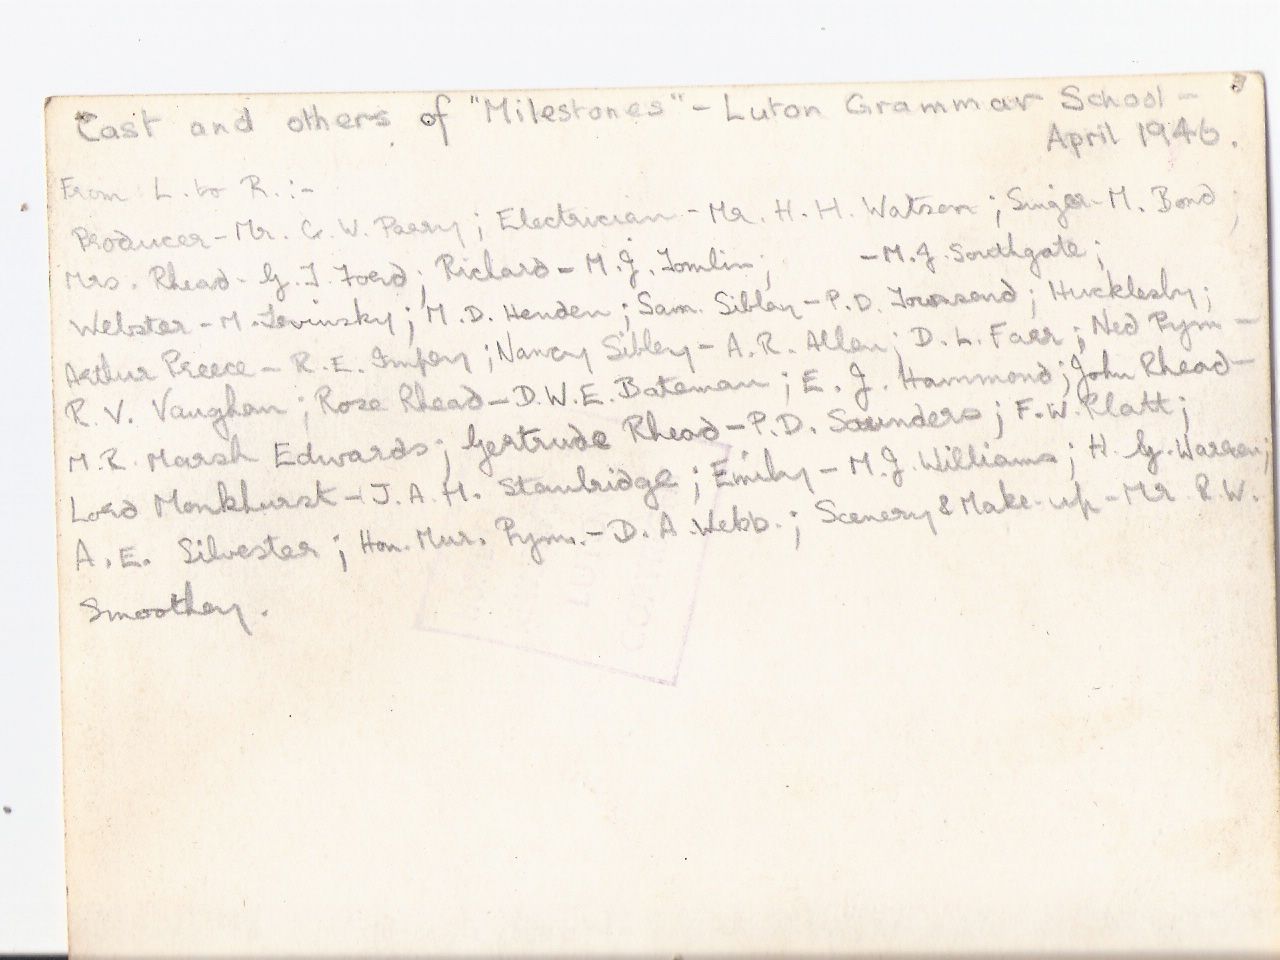 Cast and others of "Milestones" - Luton Grammar School -
April 1946.
From L. to R. :-
Producer - Mr. C. W. Parry ; Electrician - Mr. H. H. Watson ; Singer - M. Bond ;
Mrs. Rhead - G. I. Ford ; Richard - M. J. Tomlin ; - M. J. Southgate ;
Webster - M. Levinsky ; M. D. Henden ; Sam. Sibley - P. D. Townsend ; Hucklesby ;
Arthur Preece - R. E. Impey ; Nancy Sibley - A. R. Allen ; D. L. Farr ; Ned Pym -
R. V. Vaughan ; Rose Rhead - D. W. E. Bateman ; E. J. Hammond ; John Rhead -
M. R. Marsh Edwards ; Gertrude Rhead - P. D. Saunders ; F. W. Platt ;
Lord Monkhurst - J. A. H. Stanbridge ; Emily - M. J. Williams ; H. G. Warren ;
A. E. Silvester ; Hon. Mur. Pym. - D. A. Webb. ; Scenery & Make-up - Mr R. W.
Smoothey.